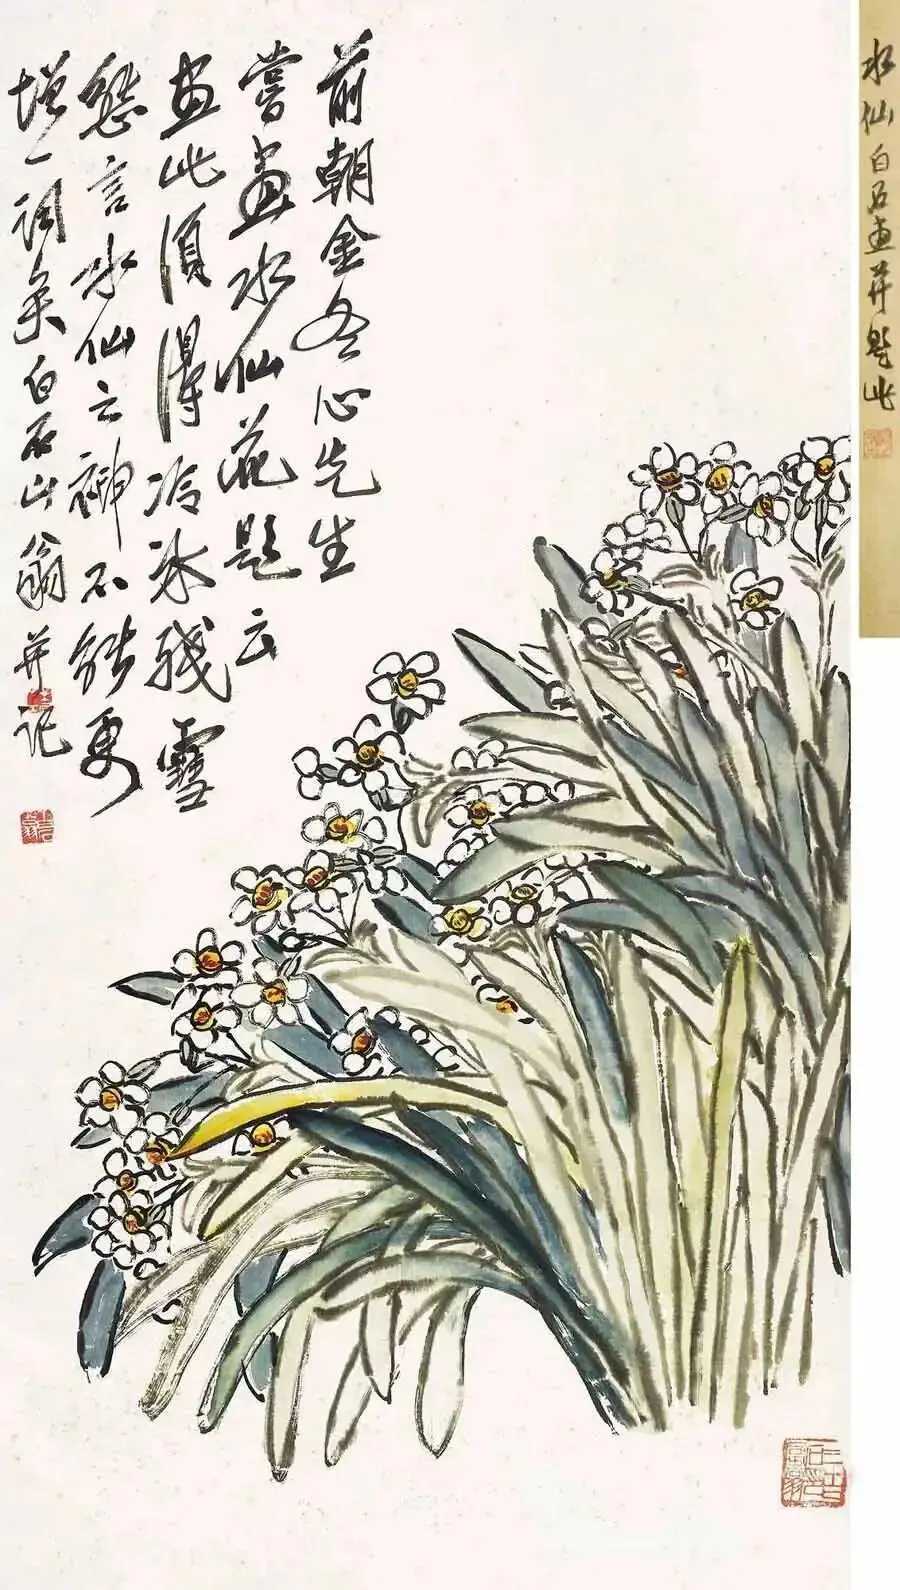 前朝金冬心先生
嘗畫水仙花題云
画此須得冷冰残雪
態言水仙之神不能更
增一词矣白石山翁并记
水仙白石画并題此